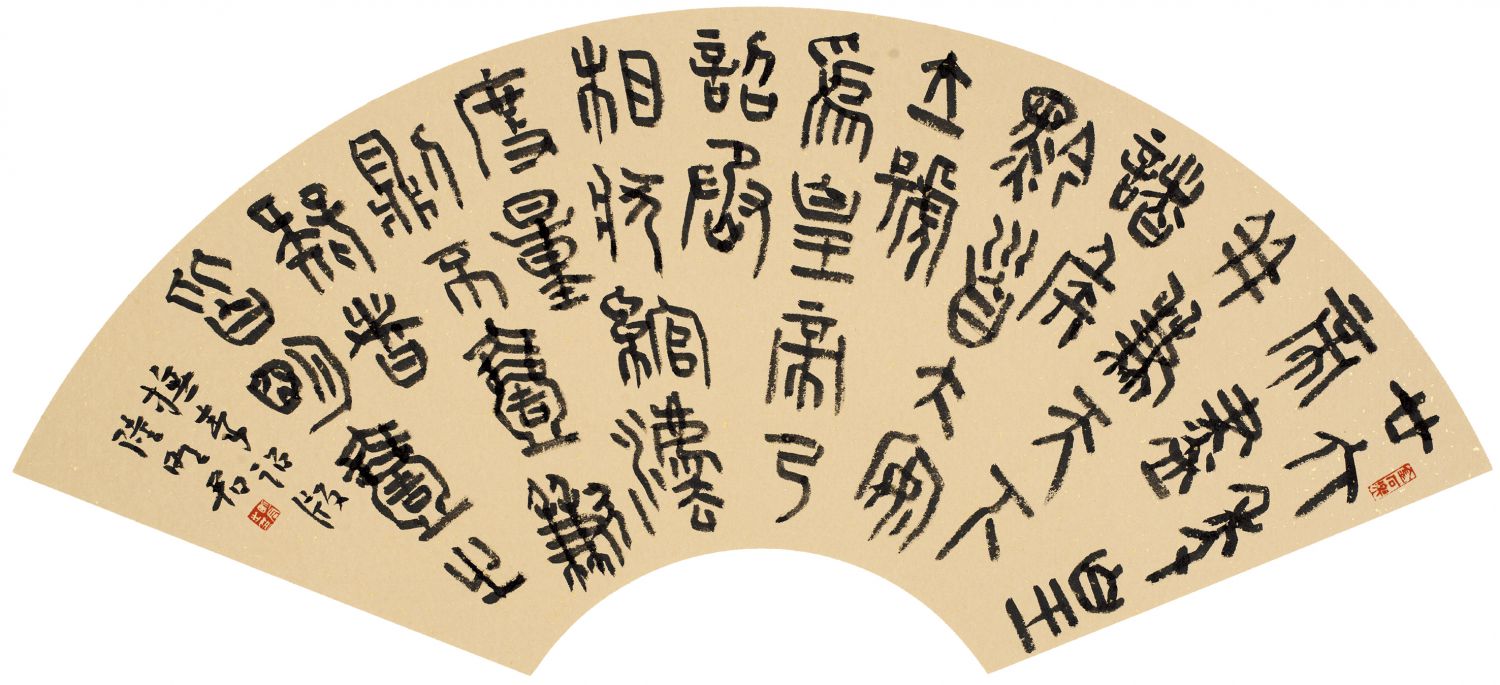 廿六年皇
帝盡
并兼天下
諸侯
黔首大安
立號
為皇帝乃
詔丞
相狀綰灋
度量
則不壹歉
疑者
皆明壹之
秦詔版
陸明君